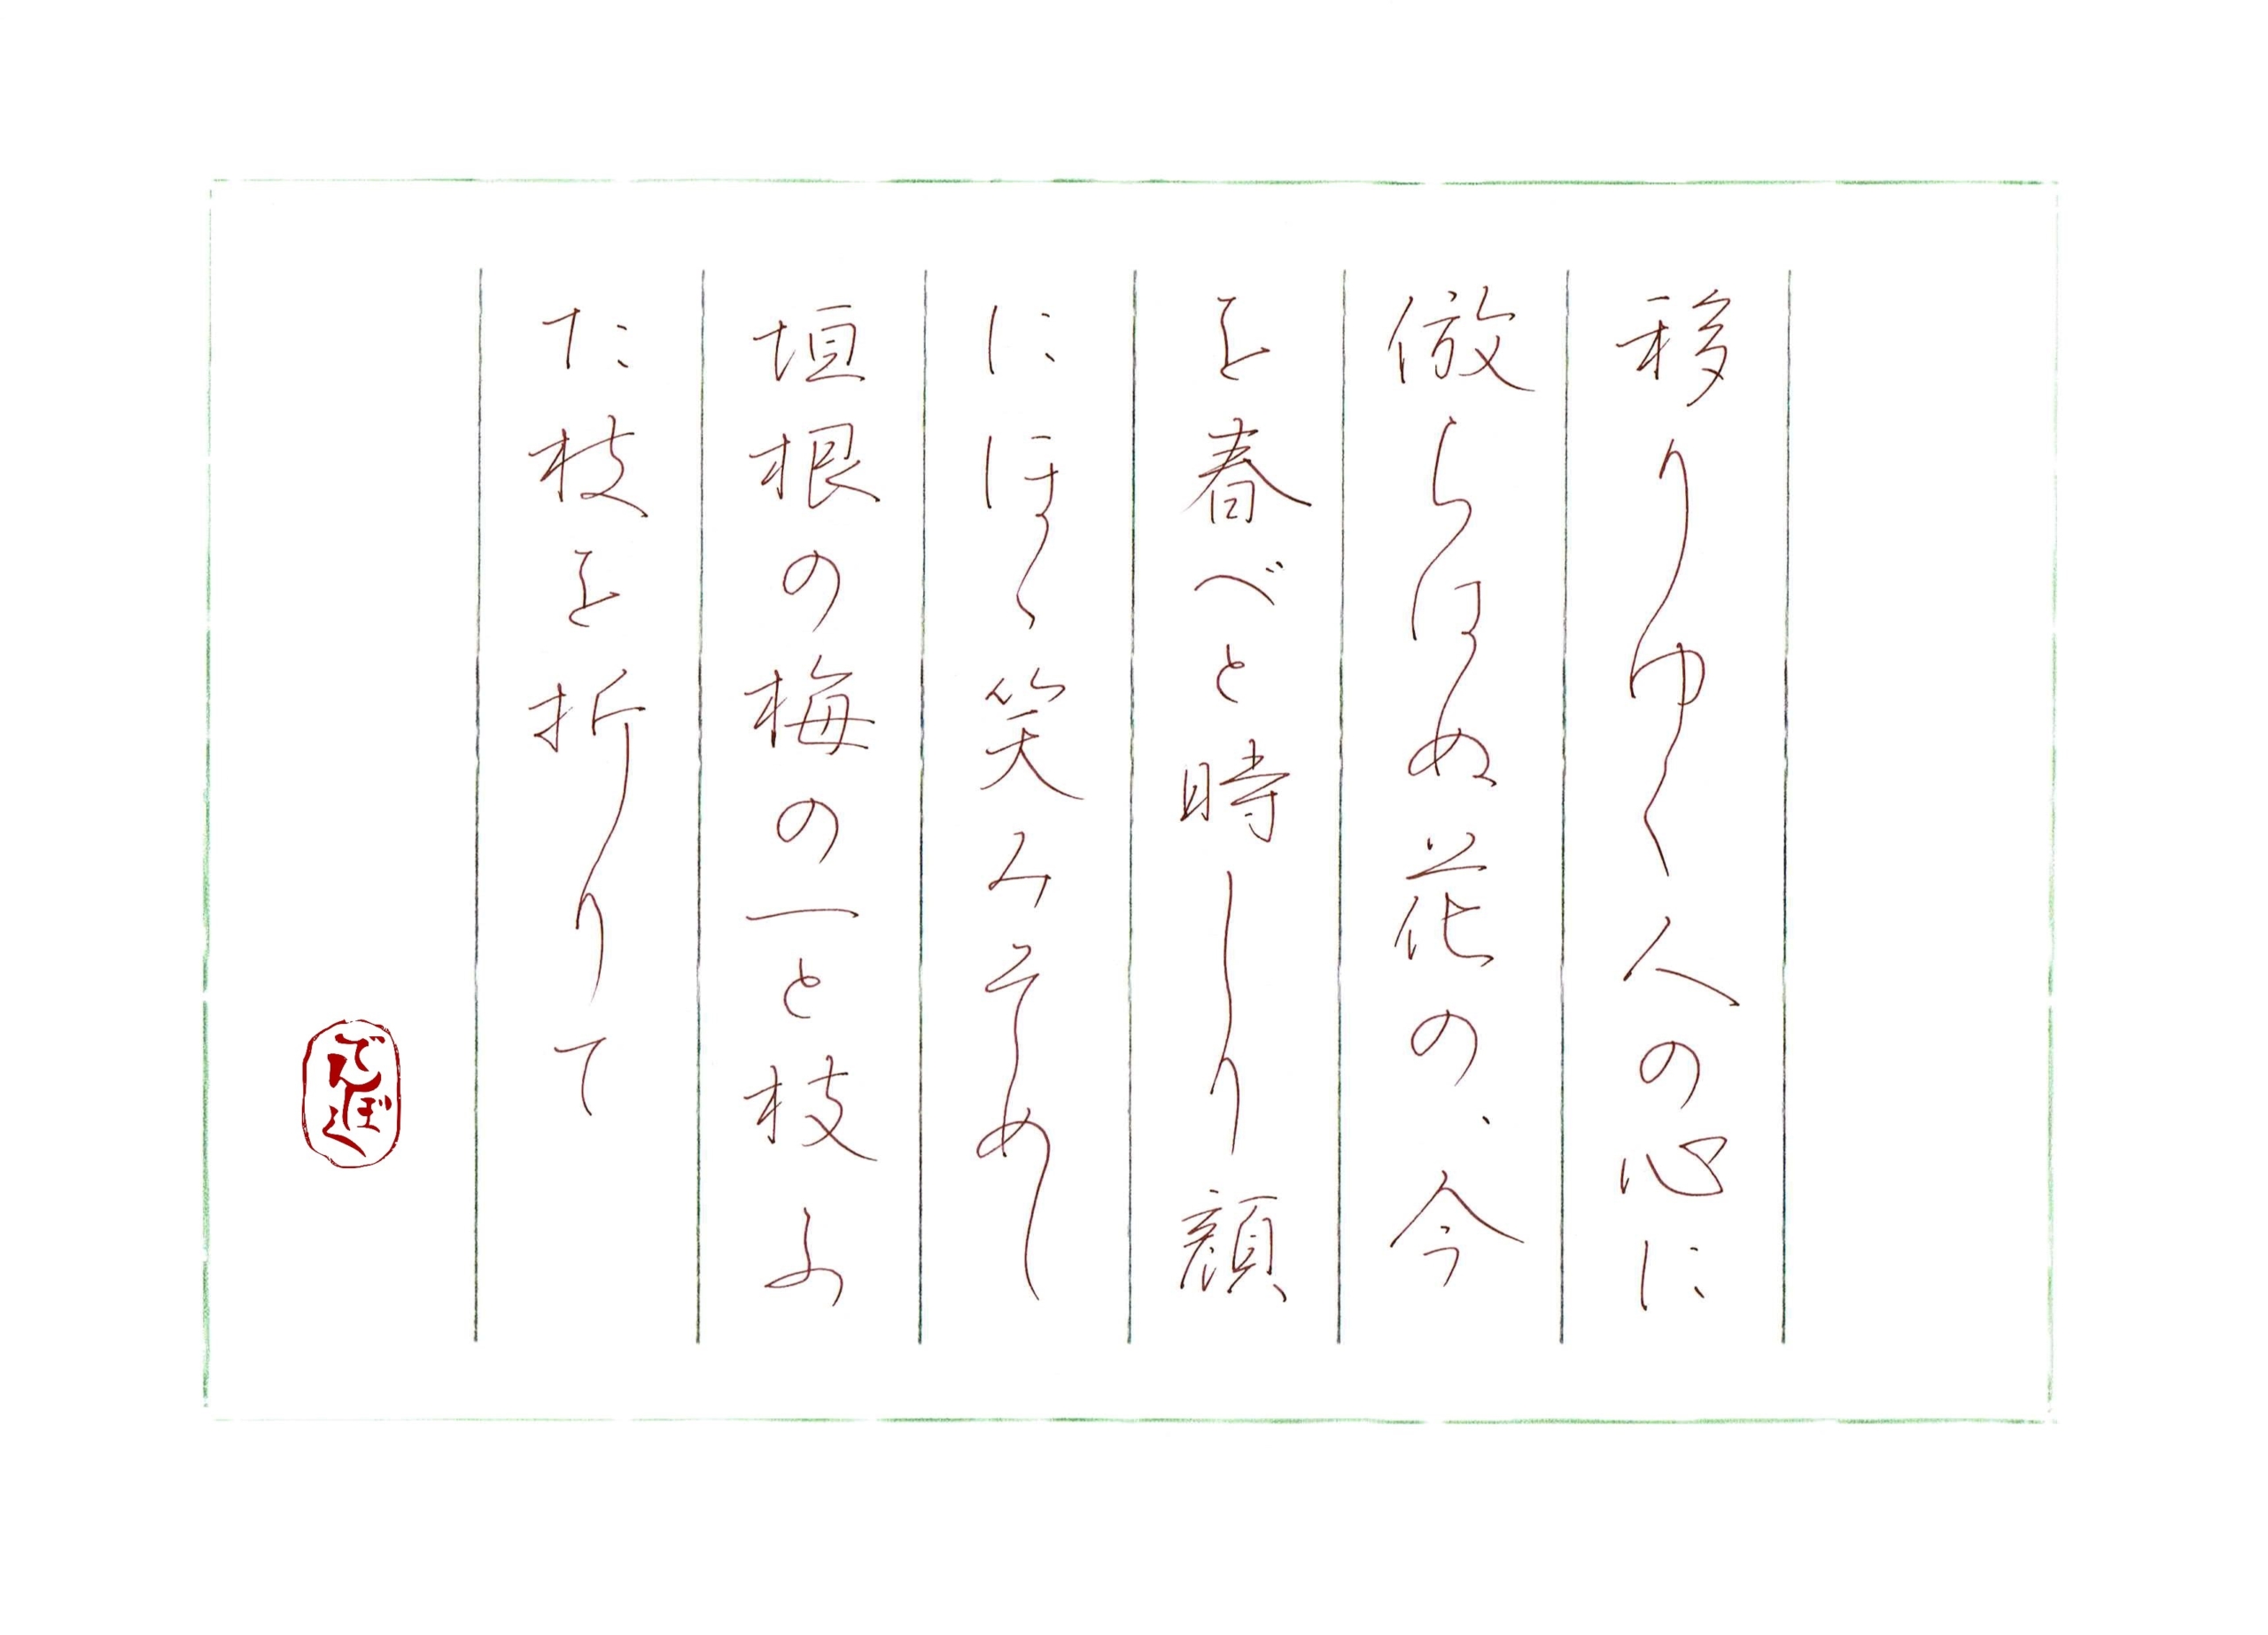 移りゆく人の心に
倣らはぬ花の、今
を春べと時しり顔
にほゝ笑みそめし
垣根の梅の一と枝ふ
た枝を折りて
でんぼく